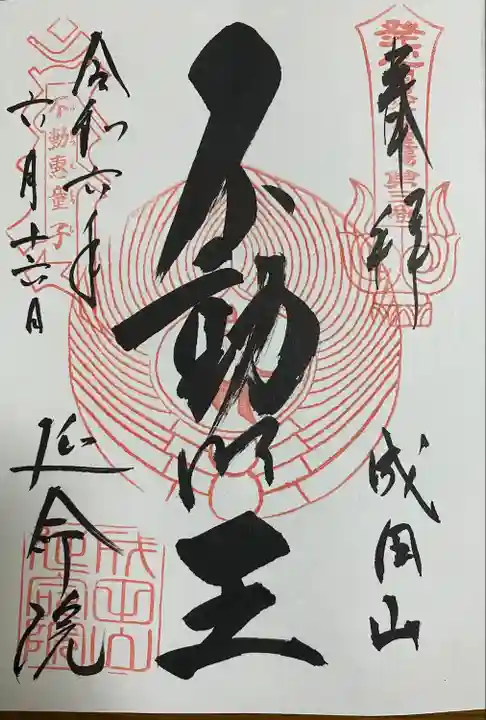 奉拝
成田山
不動明王
令和六年
六月十六日
延命院
不動恵童子